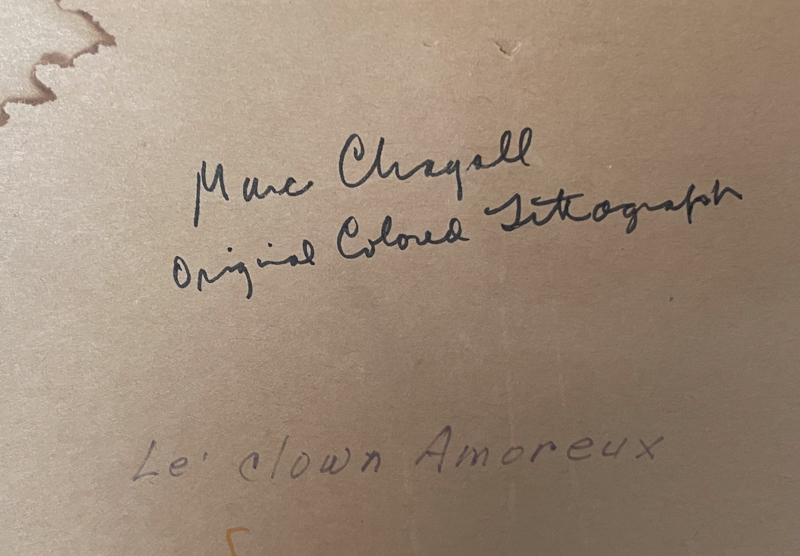 Marc Chagall
Original Colored Lithograph
Le' clown Amoreux